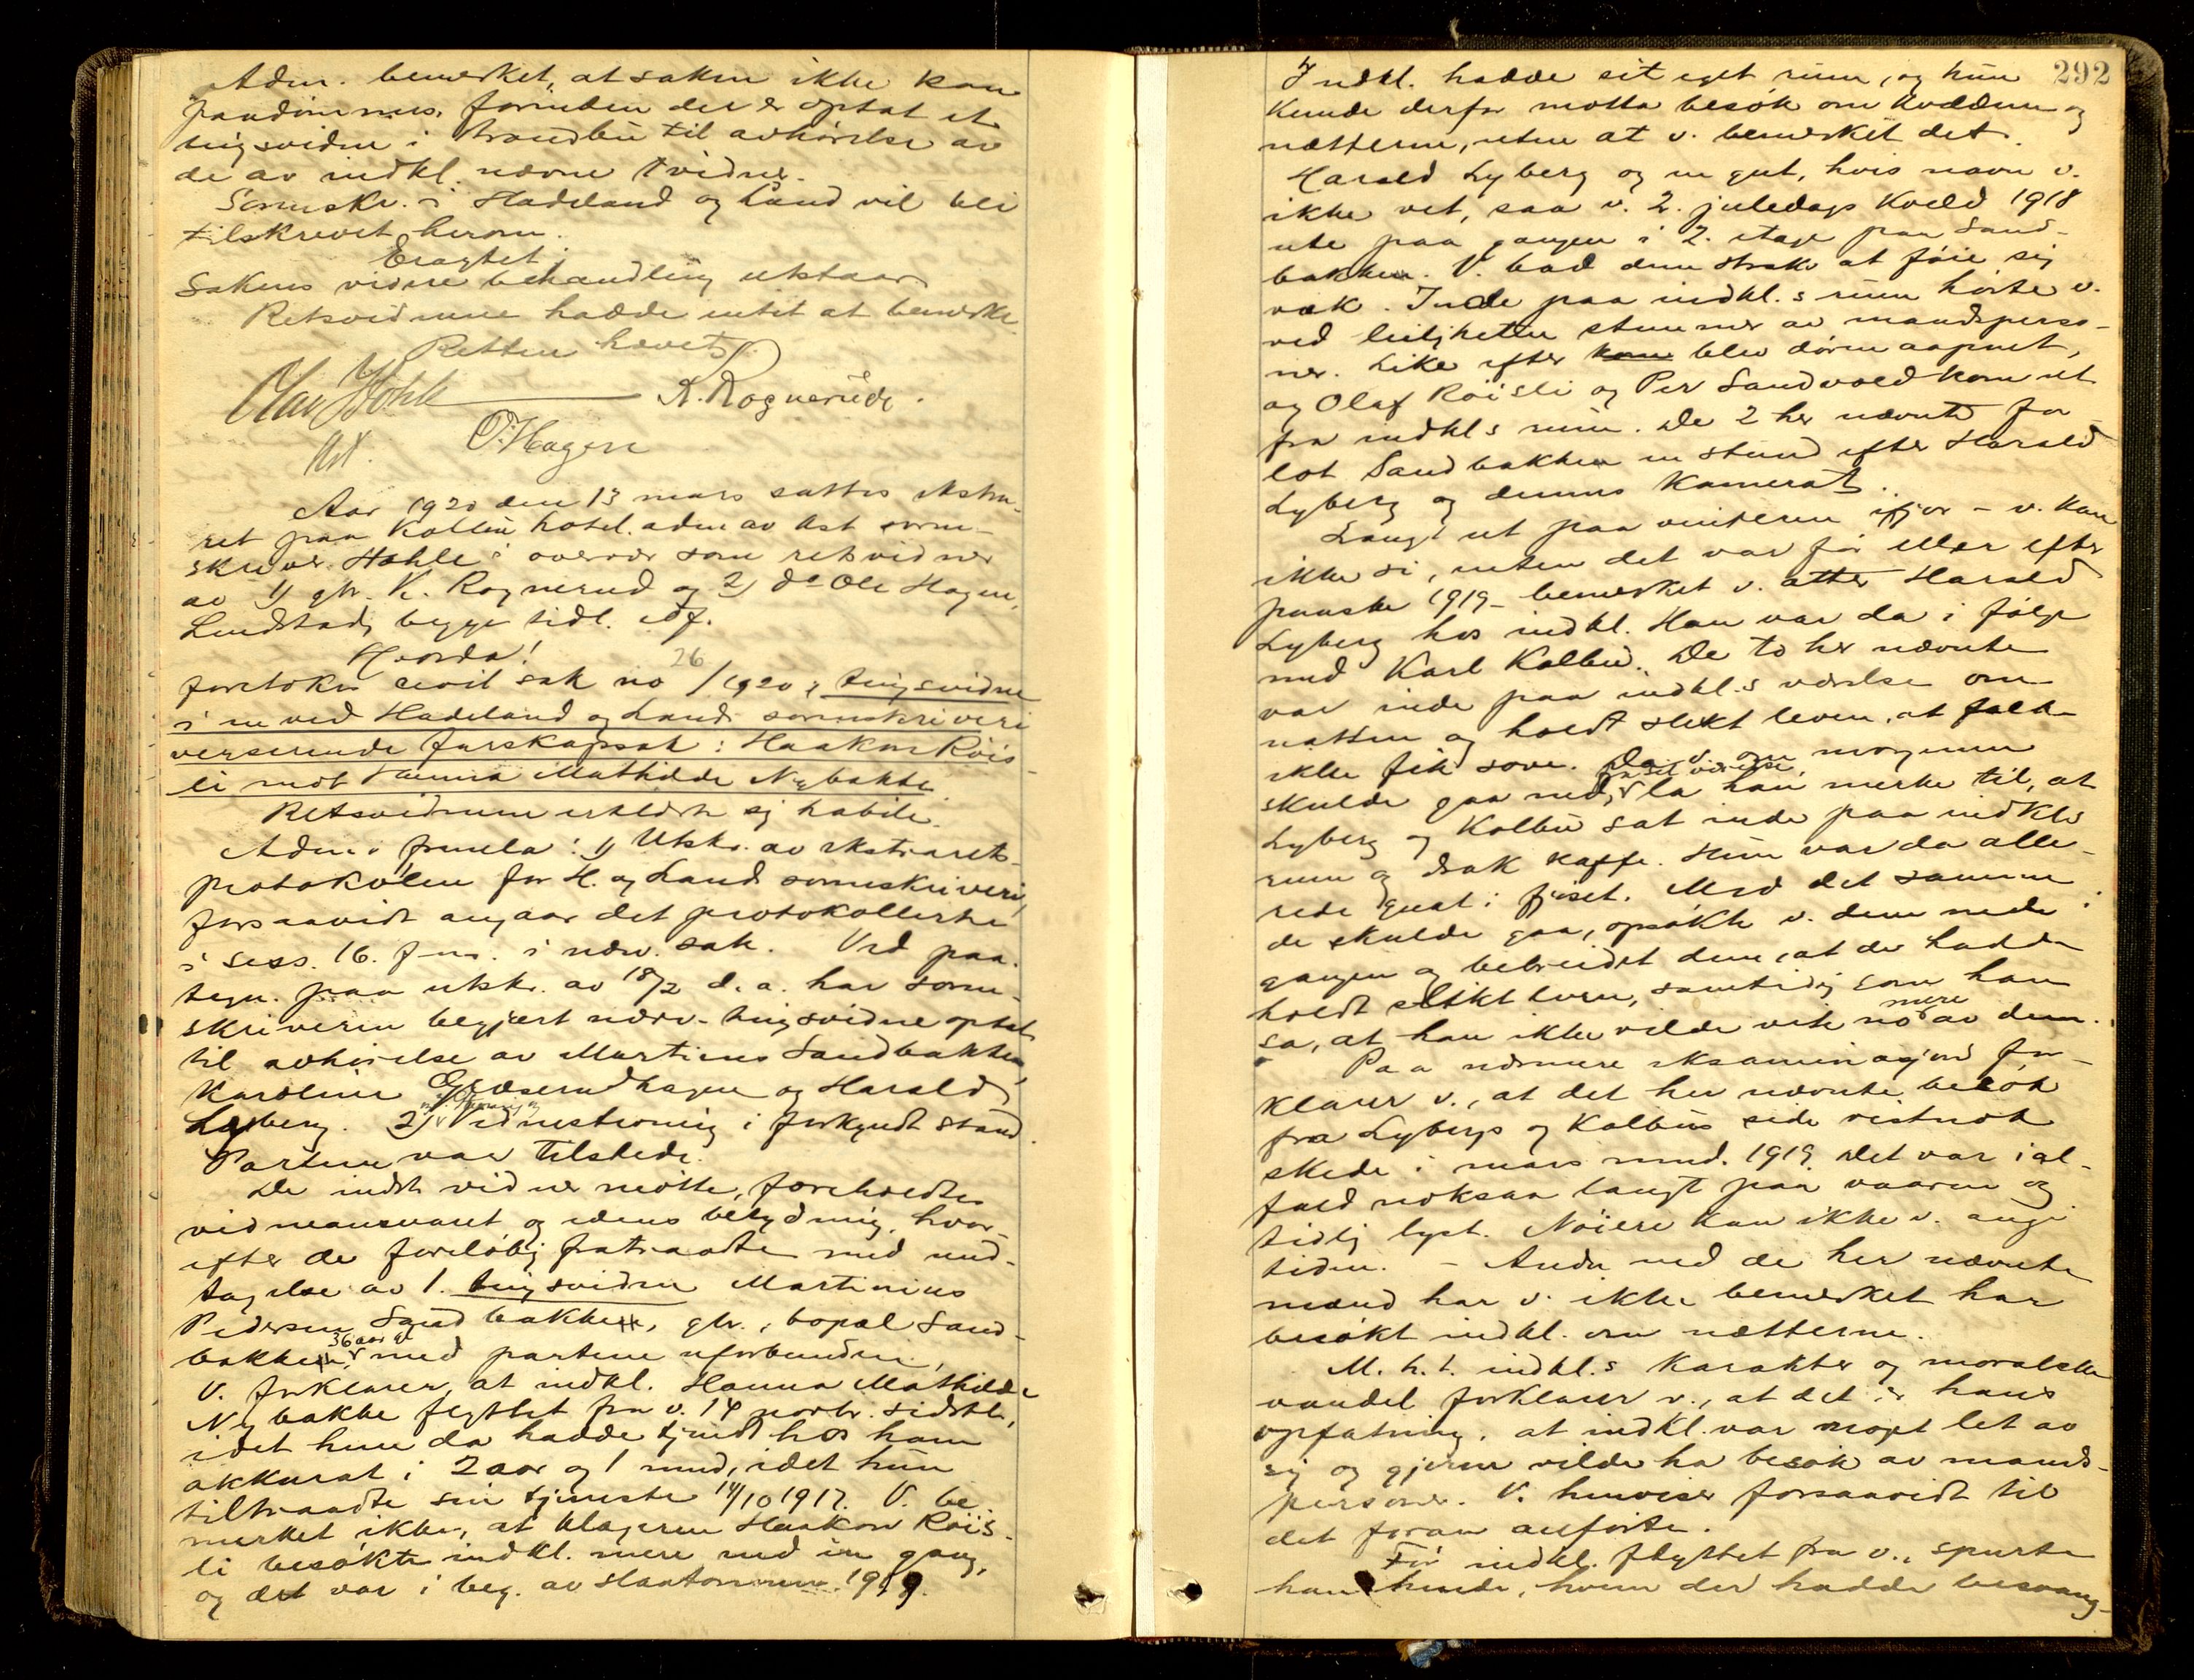 Adm. bemerket, at saken ikke kan
paadömmes, forinden der er optat et
tingsvidne i Brandbu til avhörelse av
de av indkl. nævne vidner.
Sorenskr. i Hadeland og Land vil bli
tilskrevet herom.
Eragtet:
Sakens videre behandling utstaar
Retsvidnene hadde intet at bemerke.
Retten hævet
Olav Hohle
K. Rognerud.
Ast.
O. Hagen
Aar 1920 den 13 mars sattes ekstra-
ret paa Kolbu hotel. adm av Ast soren-
skriver Hohle i overvær som retsvidner
av 1) gbr. K. Rognerud og 2) do Ole Hagen,
Lundstad, begge tidl. edf.
Hvorda!
foretokes civil sak no 26/1920: tingsvidne
i en ved Hadeland og Land sorenskriveri
verserende farskapssak: Haakon Röis-
li mot Hanna Mathilde Nybakke.
Retsvidnene erklærte sig habile.
Adm. fremla: 1) Utskr. av ekstrarets-
protokollen for H. og Land sorenskriveri,
forsaavidt angaar det protokollerte
i sess. 16. f.m. i nærv. sak. Ved paa-
tegn. paa utskr. av 18/2 d.a. har soren-
skriveren begjært nærv. tingsvidne optat
til avhörelse av Martinius Sandbakken,
Karoline Græserudhagen og Harald
Lyberg. 2) Vidnestevning i forkyndt stand.
Partene var tilstede.
De indst. vidner mötte, foreholdtes
vidneansvaret og edens betydning, hvor-
efter de foreløbig fratraadte med und-
tagelse av 1. tingsvidne Martinius
Pedersen Sandbakken, gbr., bopæl Sand-
bakken, 36 aar gl. med partene uforbunden,
V. forklarer, at indkl. Hanna Mathilde
Nybakke flyttet fra v. 14 novbr. sidstl,
idet hun da hadde tjent hos ham
akkurat i 2 aar og 1 mnd, idet hun
tiltraadte sin tjeneste 14/10 1917. V. be-
merket ikke, at klageren Haakon Röis-
li besökte indkl. mere end en gang,
og det var i beg. av slaatonnen 1919.
292
Indkl. hadde sit eget rum, og hun
kunde derfor motta besök om kvældene og
nætterne, uten at v. bemerket det.
Harald Lyberg og en gut, hvis navn v.
ikke vet, saa v. 2. juledags kveld 1918
ute paa gangen i 2. etage paa Sand-
bakken. V. bad dem straks at föie sig
væk. Inde paa indkl.s rum hörte v.
ved leiligheten stemmer av mandsperso-
ner. Like efter kom blev dören aapnet,
og Olaf Röisli og Per Sandvold kom ut
fra indkls rum. De 2 her nævnte for
lot Sandbakken en stund efter Harald
Lyberg og dennes kamerat.
Langt ut paa vinteren ifjor – v. kan
ikke si, enten det var för eller efter
paaske 1919 – bemerket v. atter Harald
Lyberg hos indkl. Han var da i fölge
med Karl Kolbu. De to her nævnte
var inde paa indkl.s værelse om
natten og holdt slikt leven, at folk
ikke fik sove. Da v. om morgenen
skulde gaa ned, fra sit værelse la han merke til, at
Lyberg og Kolbu sat inde paa indkls
rum og drak kaffe. Hun var da alle-
rede gaat i fjöset. Med det samme
de skulde gaa, opsökte v. dem nede i
gangen og bebreidet dem, at de hadde
holdt slikt leven, samtidig som han
sa, at han ikke vilde vite no mere av dem.
Paa nærmere eksaminasjon for-
klarer v., at det her nævnte besök
fra Lybergs og Kolbus side vistnok
skede i mars mnd. 1919. Det var ial-
fald noksaa langt paa vaaren og
tidlig lyst. Nöiere kan ikke v. angi
tiden. – Andre end de her nævnte
mænd har v. ikke bemerket har
besökt indkl. om nætterne.
M. h. t. indkl.s karakter og moralske
vandel forklarer v., at det er hans
opfatning, at indkl. var noget let av
sig og gjerne vilde ha besök av mands-
personer. V. henviser forsaavidt til
det foran anförte.
För indkl. flyttet fra v., spurte
han hende, hvem der hadde besvang-